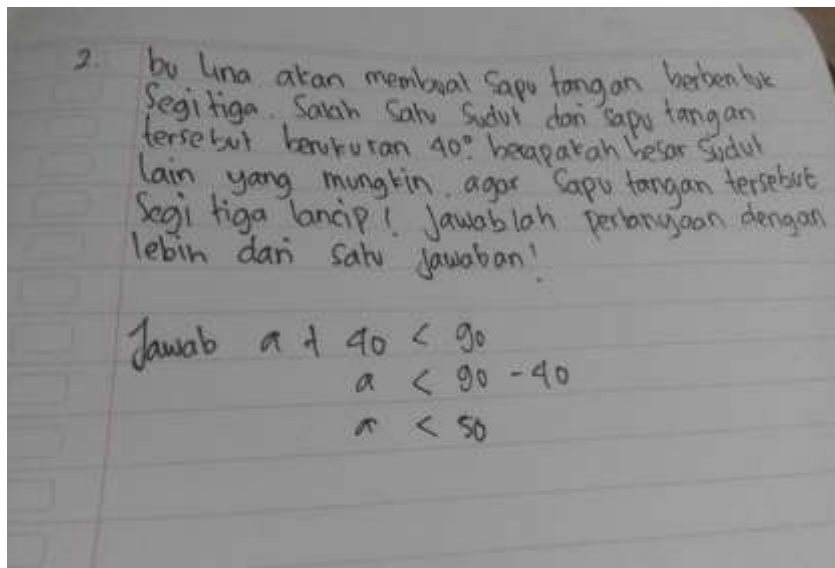 2. bu lina akan membuat Sapu tangan berbentuk
Segitiga. Salah Satu Sudut dari sapu tangan
tersebut berukuran 40°. berapakah besar Sudut
lain yang mungkin agar Sapu tangan tersebut
Segi tiga lancip! Jawablah pertanyaan dengan
lebih dari satu jawaban!
Jawab a + 40 < 90
a < 90 - 40
a < 50